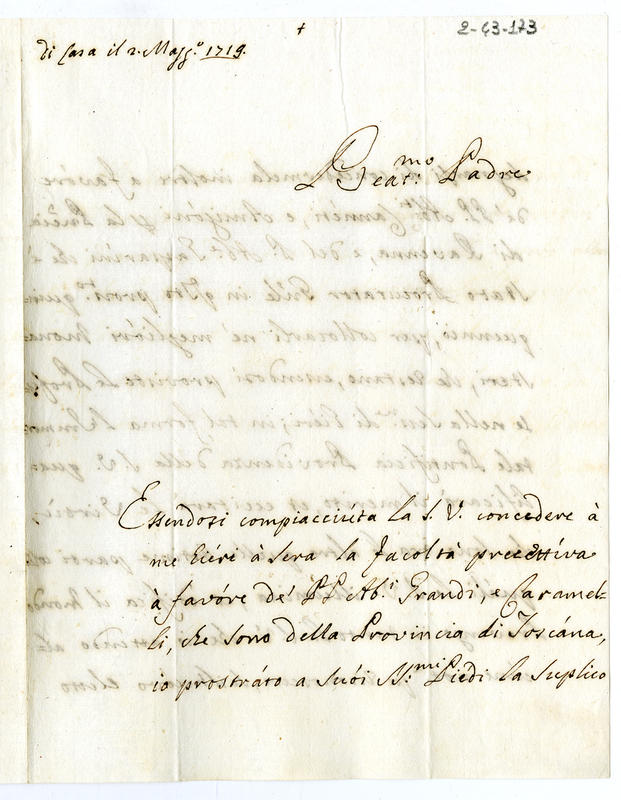 2-43-173
di Casa il 2. Magg.o 1719.
Beat.mo Padre
Essendosi compiacciúta la S. V. concedere à
me Eiére à sera la facoltà precettíva
à favóre de' PP Ab.i Grandi, e Caramel=
li, che sono della Provincia di Toscána,
io prostráto a suói SS.mi Piedi la suplico